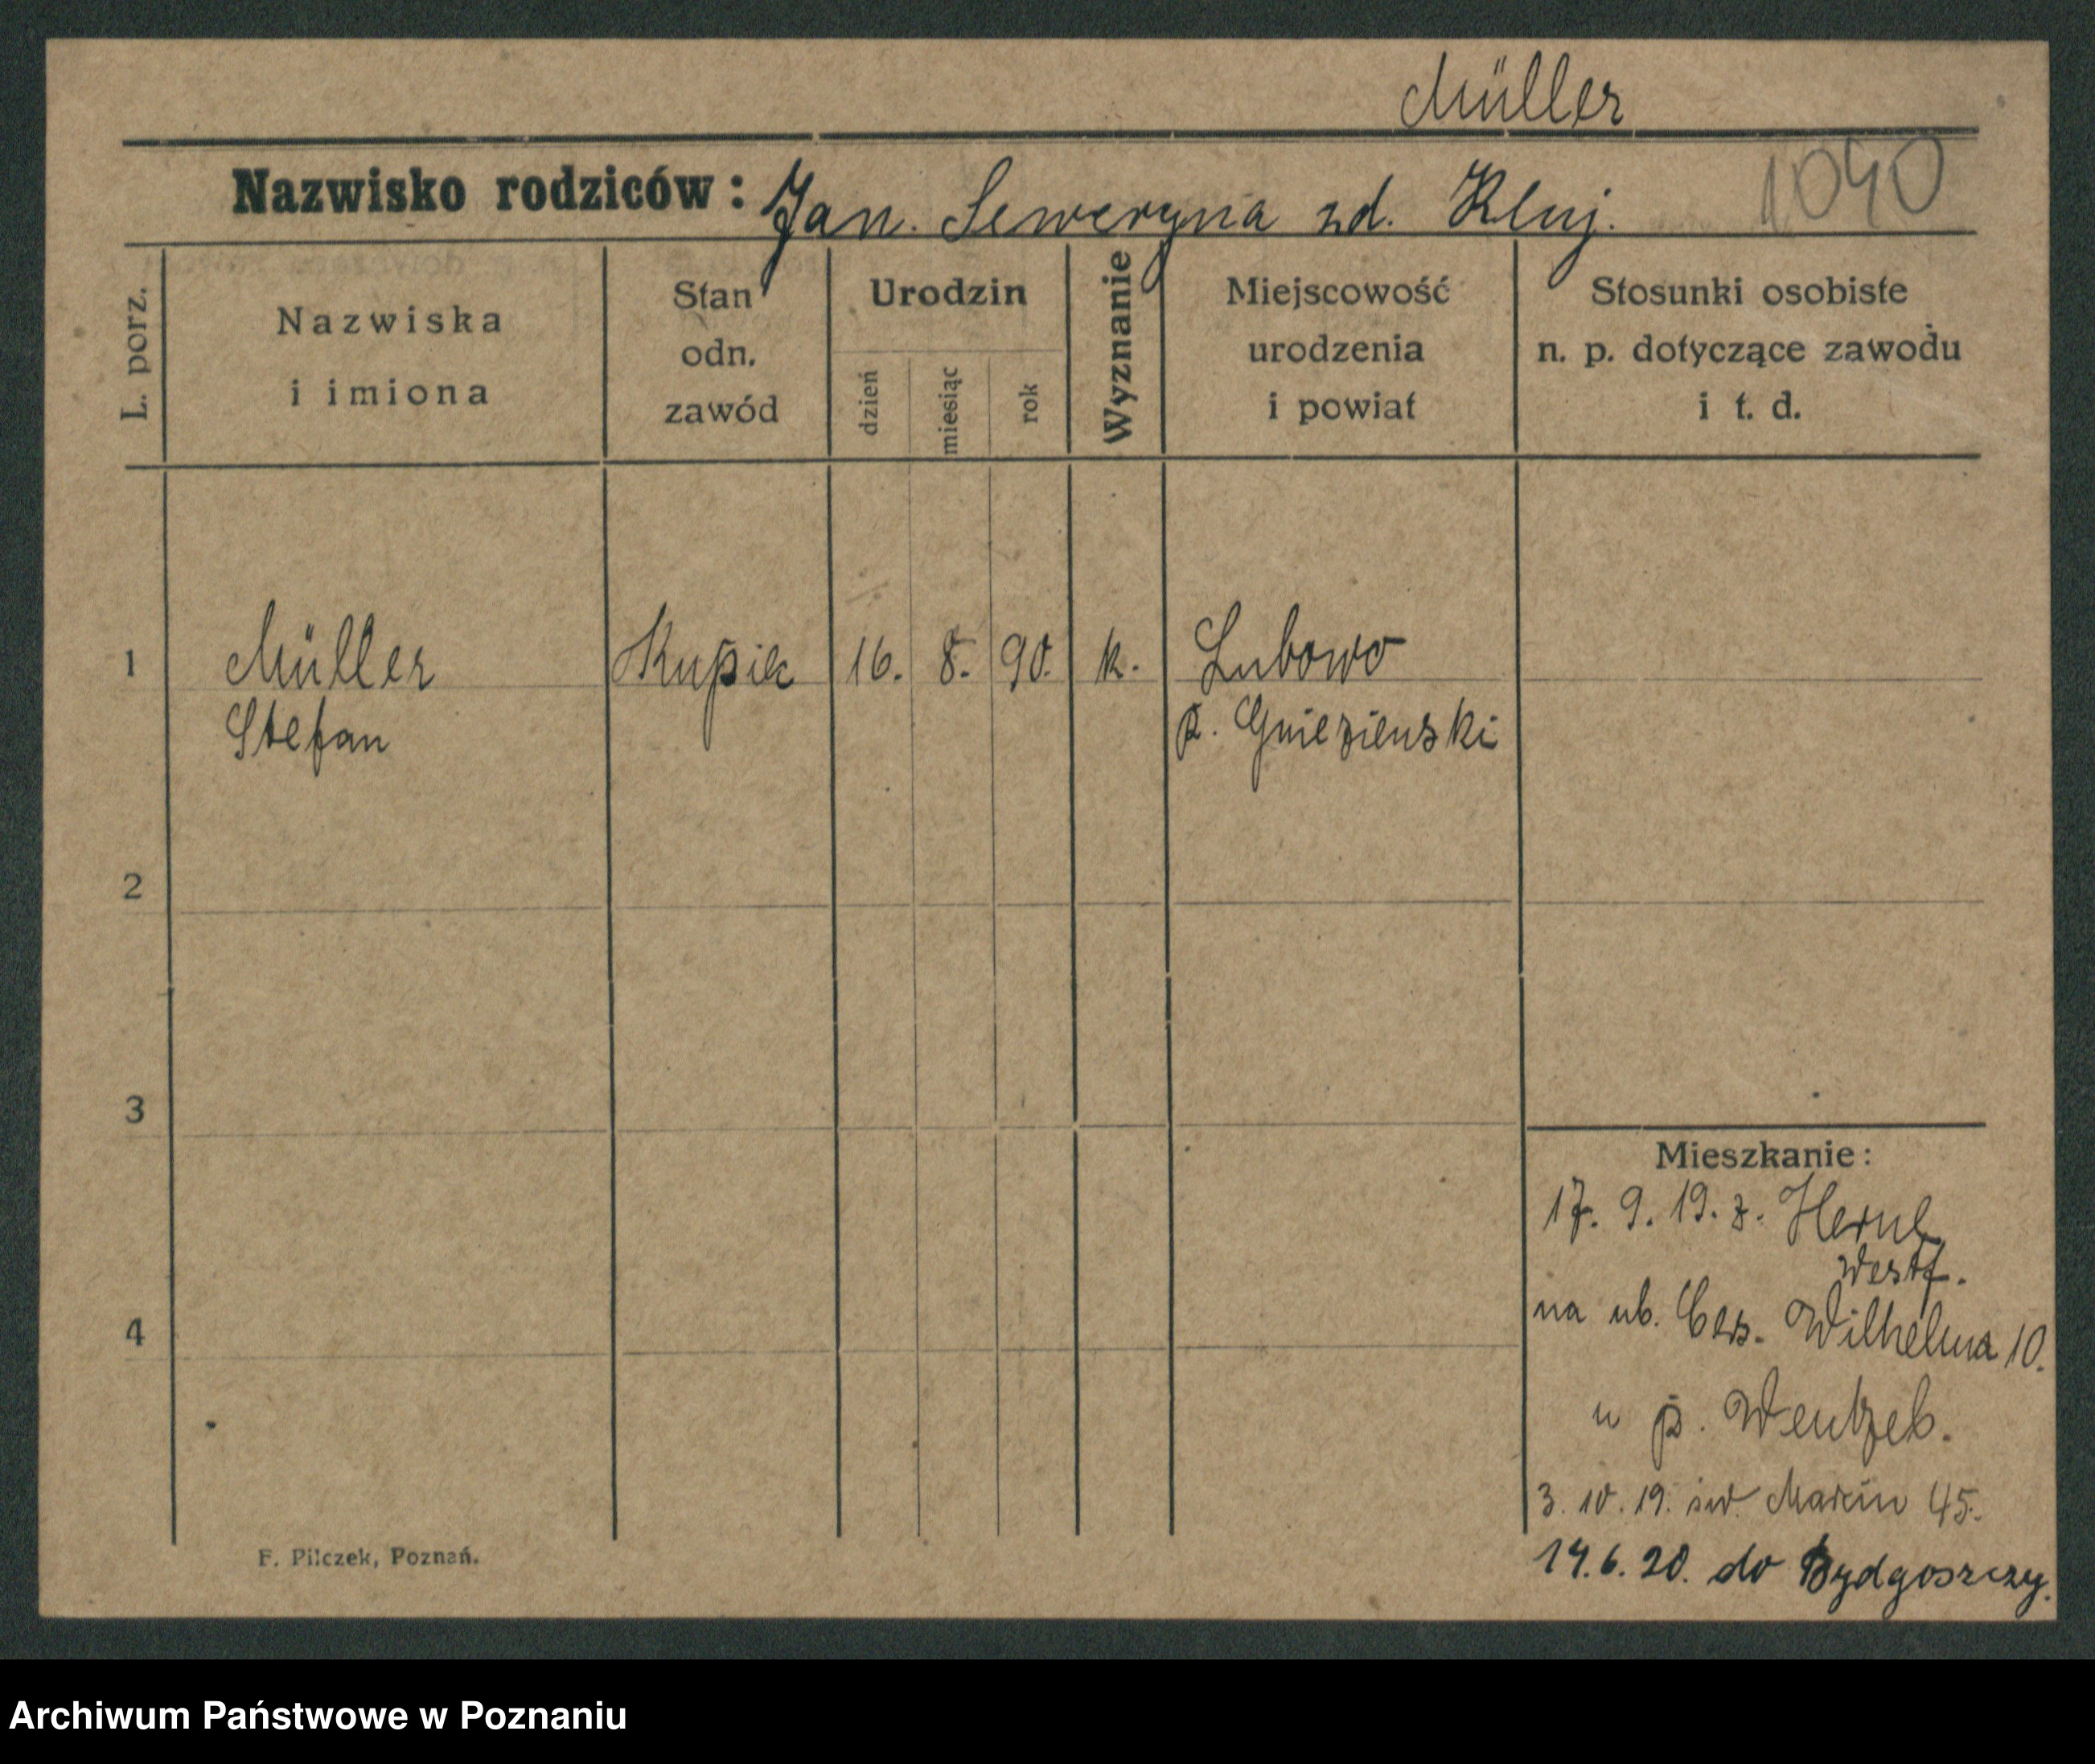 Müller
Nazwisko rodziców: Jan. Seweryna zd. Kluj.
1040
L. porz.
Nazwiska
i imiona
Stan
odn.
zawód
Urodzin
dzień
miesiąc
rok
Wyznanie
Miejscowość
urodzenia
i powiat
Stosunki osobiste
n. p. dotyczące zawodu
i t. d.
1 Müller Kupiec 16. 8. 90. k. Lubowo
Stefan p. Gnieźienski
2
3
4
Mieszkanie:
17. 9. 19. z. Herne
Westf.
na ul. Ces. Wilhelma 10.
u p.
3. 10. 19. św. Marcin 45.
14. 6. 20. do Bydgoszczy.
F. Pilczek, Poznań.
Archiwum Państwowe w Poznaniu